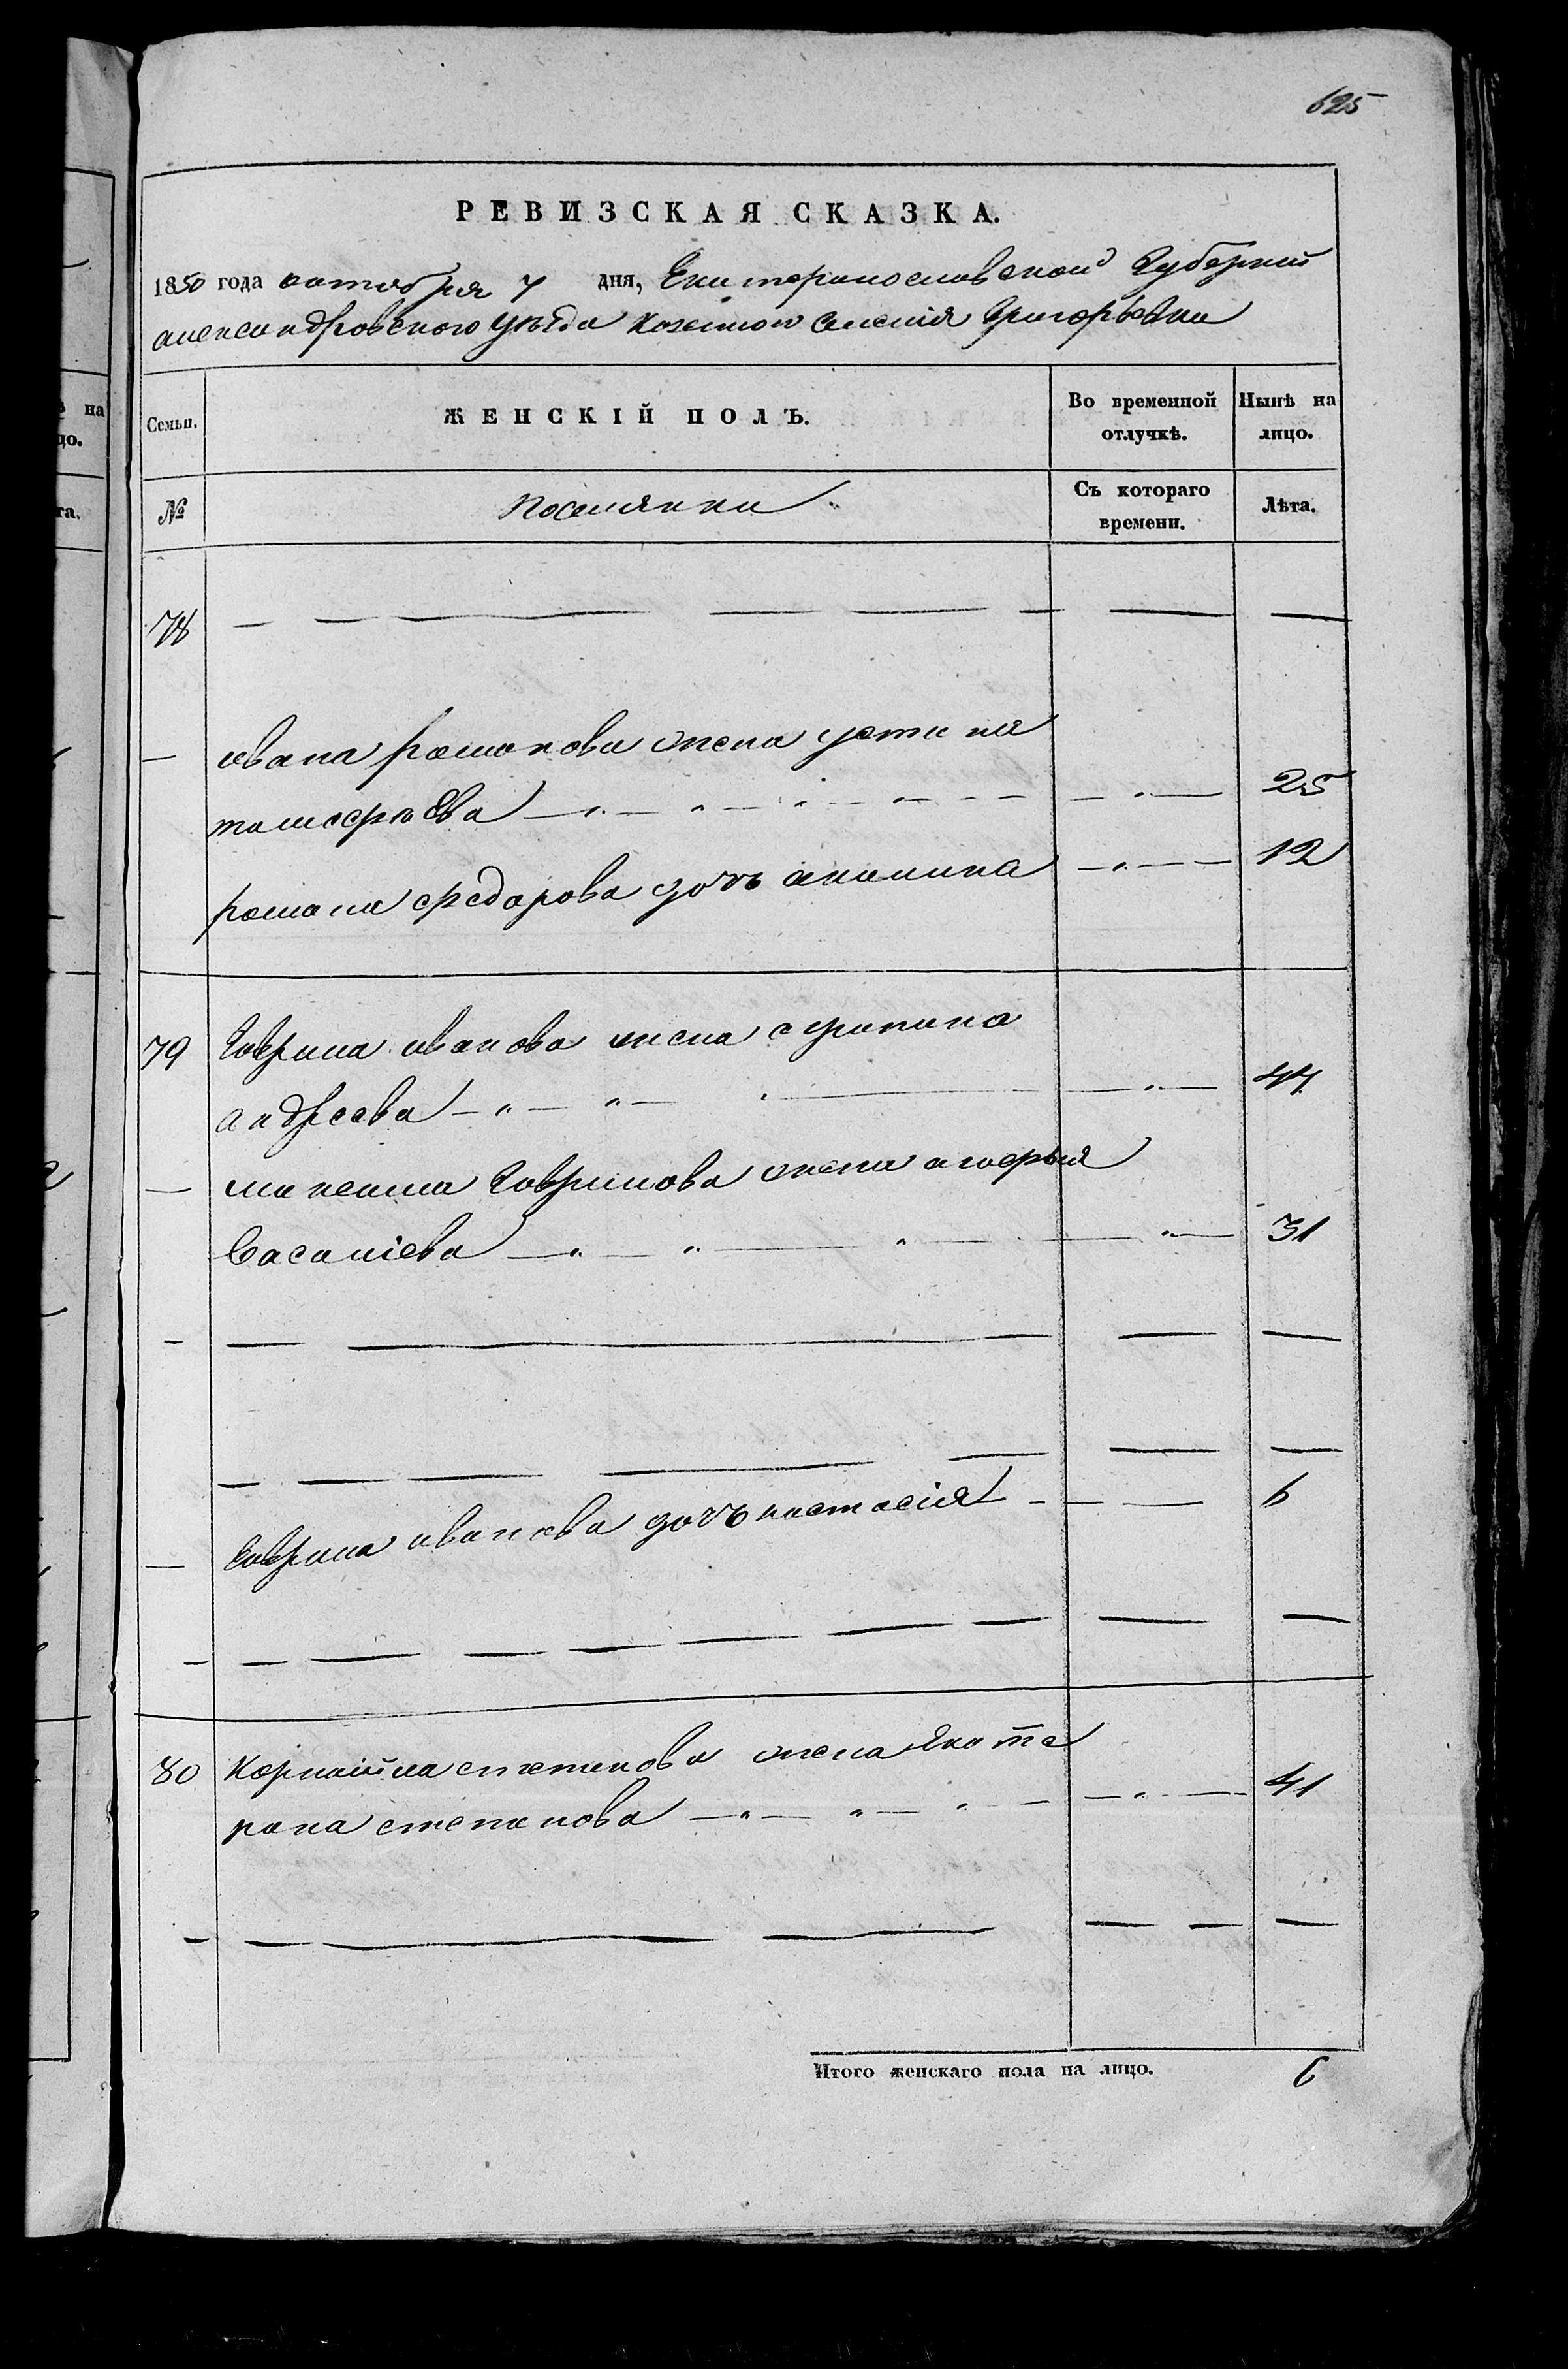 625
РЕВИЗСКАЯ СКАЗКА.
1850 года октября 7 дня, Екатеринославской Губернии
александровского уѣзда казенного селенія Григорьевки
Семьи.
ЖЕНСКІЙ ПОЛЪ.
Во временной отлучкѣ.
Нынѣ на лицо.
№
поселянки
Съ котораго времени.
Лѣта.
78
ивана романова жена устиня
тимофеева 25
романа федорова дочь акилина 12
79 Гаврила иванова жена агрипина
андреева 44
максима Гаврилова жена агафья
Васалиева 31
Гаврила иванова дочь настасія 6
80 Корнийла степанова жена Екате
рина степанова 41
Итого женскаго пола на лицо. 6